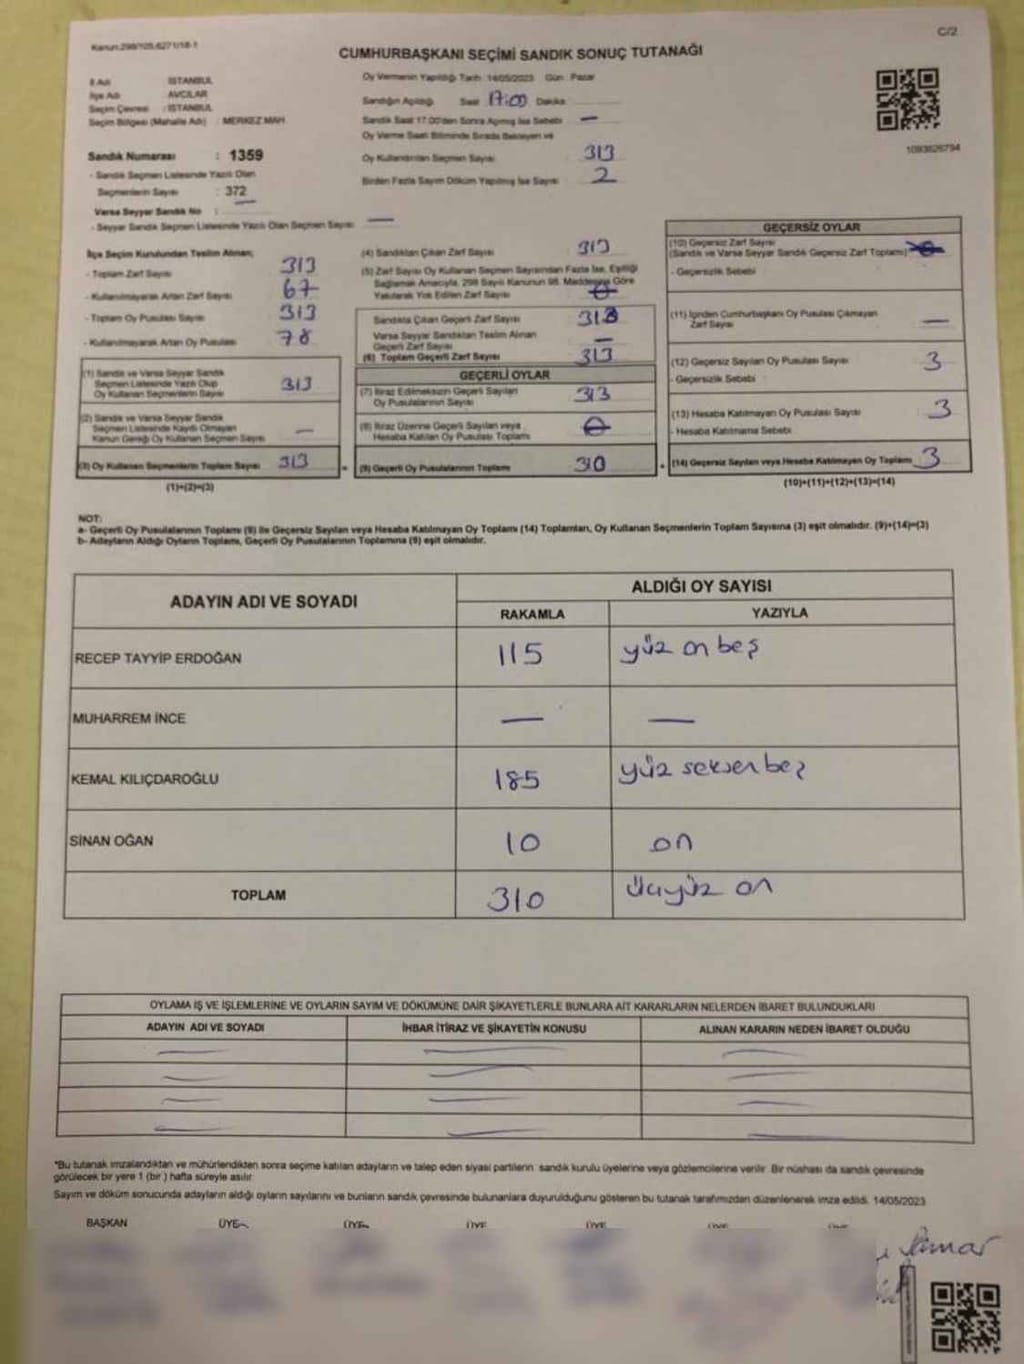 Kanun:298/105,6271/18-1
C/2
CUMHURBAŞKANI SEÇİMİ SANDIK SONUÇ TUTANAĞI
İl Adı : İSTANBUL
İlçe Adı : AVCILAR
Seçim Çevresi : İSTANBUL
Seçim Bölgesi (Mahalle Adı) : MERKEZ MAH.
Oy Vermenin Yapıldığı Tarih :14/05/2023 Gün : Pazar
Sandığın Açıldığı Saat 17:00 Dakika
Sandık Saat 17.00'den Sonra Açılmış İse Sebebi —
Oy Verme Saati Bitiminde Sırada Bekleyen ve
Oy Kullandırılan Seçmen Sayısı 313
Birden Fazla Sayım Döküm Yapılmış İse Sayısı 2
1093626794
Sandık Numarası : 1359
- Sandık Seçmen Listesinde Yazılı Olan
Seçmenlerin Sayısı : 372
Varsa Seyyar Sandık No : —
- Seyyar Sandık Seçmen Listesinde Yazılı Olan Seçmen Sayısı —
İlçe Seçim Kurulundan Teslim Alınan;
- Toplam Zarf Sayısı 313
- Kullanılmayarak Artan Zarf Sayısı 67
- Toplam Oy Pusulası Sayısı 313
- Kullanılmayarak Artan Oy Pusulası 78
(1) Sandık ve Varsa Seyyar Sandık
Seçmen Listesinde Yazılı Olup
Oy Kullanan Seçmenlerin Sayısı 313
(2) Sandık ve Varsa Seyyar Sandık
Seçmen Listesinde Kayıtlı Olmayan
Kanun Gereği Oy Kullanan Seçmen Sayısı —
(3) Oy Kullanan Seçmenlerin Toplam Sayısı 313
(1)+(2)=(3)
(4) Sandıktan Çıkan Zarf Sayısı 313
(5) Zarf Sayısı Oy Kullanan Seçmen Sayısından Fazla İse, Eşitliği
Sağlamak Amacıyla, 298 Sayılı Kanunun 98. Maddesine Göre
Yakılarak Yok Edilen Zarf Sayısı
Sandıkta Çıkan Geçerli Zarf Sayısı 313
Varsa Seyyar Sandıktan Teslim Alınan
Geçerli Zarf Sayısı —
(6) Toplam Geçerli Zarf Sayısı 313
GEÇERLİ OYLAR
(7) İtiraz Edilmeksizin Geçerli Sayılan
Oy Pusulalarının Sayısı 313
(8) İtiraz Üzerine Geçerli Sayılan veya
Hesaba Katılan Oy Pusulası Toplamı
(9) Geçerli Oy Pusulalarının Toplamı 310
GEÇERSİZ OYLAR
(10) Geçersiz Zarf Sayısı
(Sandık ve Varsa Seyyar Sandık Geçersiz Zarf Toplamı)
- Geçersizlik Sebebi
(11) İçinden Cumhurbaşkanı Oy Pusulası Çıkmayan
Zarf Sayısı —
(12) Geçersiz Sayılan Oy Pusulası Sayısı 3
- Geçersizlik Sebebi
(13) Hesaba Katılmayan Oy Pusulası Sayısı 3
- Hesaba Katılmama Sebebi
(14) Geçersiz Sayılan veya Hesaba Katılmayan Oy Toplamı 3
(10)+(11)+(12)+(13)=(14)
NOT:
a- Geçerli Oy Pusulalarının Toplamı (9) ile Geçersiz Sayılan veya Hesaba Katılmayan Oy Toplamı (14) Toplamları, Oy Kullanan Seçmenlerin Toplam Sayısına (3) eşit olmalıdır. (9)+(14)=(3)
b- Adayların Aldığı Oyların Toplamı, Geçerli Oy Pusulalarının Toplamına (9) eşit olmalıdır.
ADAYIN ADI VE SOYADI
ALDIĞI OY SAYISI
RAKAMLA YAZIYLA
RECEP TAYYİP ERDOĞAN 115 yüz on beş
MUHARREM İNCE — —
KEMAL KILIÇDAROĞLU 185 yüz seksen beş
SİNAN OĞAN 10 on
TOPLAM 310 üçyüz on
OYLAMA İŞ VE İŞLEMLERİNE VE OYLARIN SAYIM VE DÖKÜMÜNE DAİR ŞİKAYETLERLE BUNLARA AİT KARARLARIN NELERDEN İBARET BULUNDUKLARI
ADAYIN ADI VE SOYADI İHBAR İTİRAZ VE ŞİKAYETİN KONUSU ALINAN KARARIN NEDEN İBARET OLDUĞU
*Bu tutanak imzalandıktan ve mühürlendikten sonra seçime katılan adayların ve talep eden siyasi partilerin sandık kurulu üyelerine veya gözlemcilerine verilir. Bir nüshası da sandık çevresinde
görülecek bir yere 1 (bir ) hafta süreyle asılır.
Sayım ve döküm sonucunda adayların aldığı oyların sayılarını ve bunların sandık çevresinde bulunanlara duyurulduğunu gösteren bu tutanak tarafımızdan düzenlenerek imza edildi. 14/05/2023
BAŞKAN ÜYE ÜYE ÜYE ÜYE ÜYE ÜYE